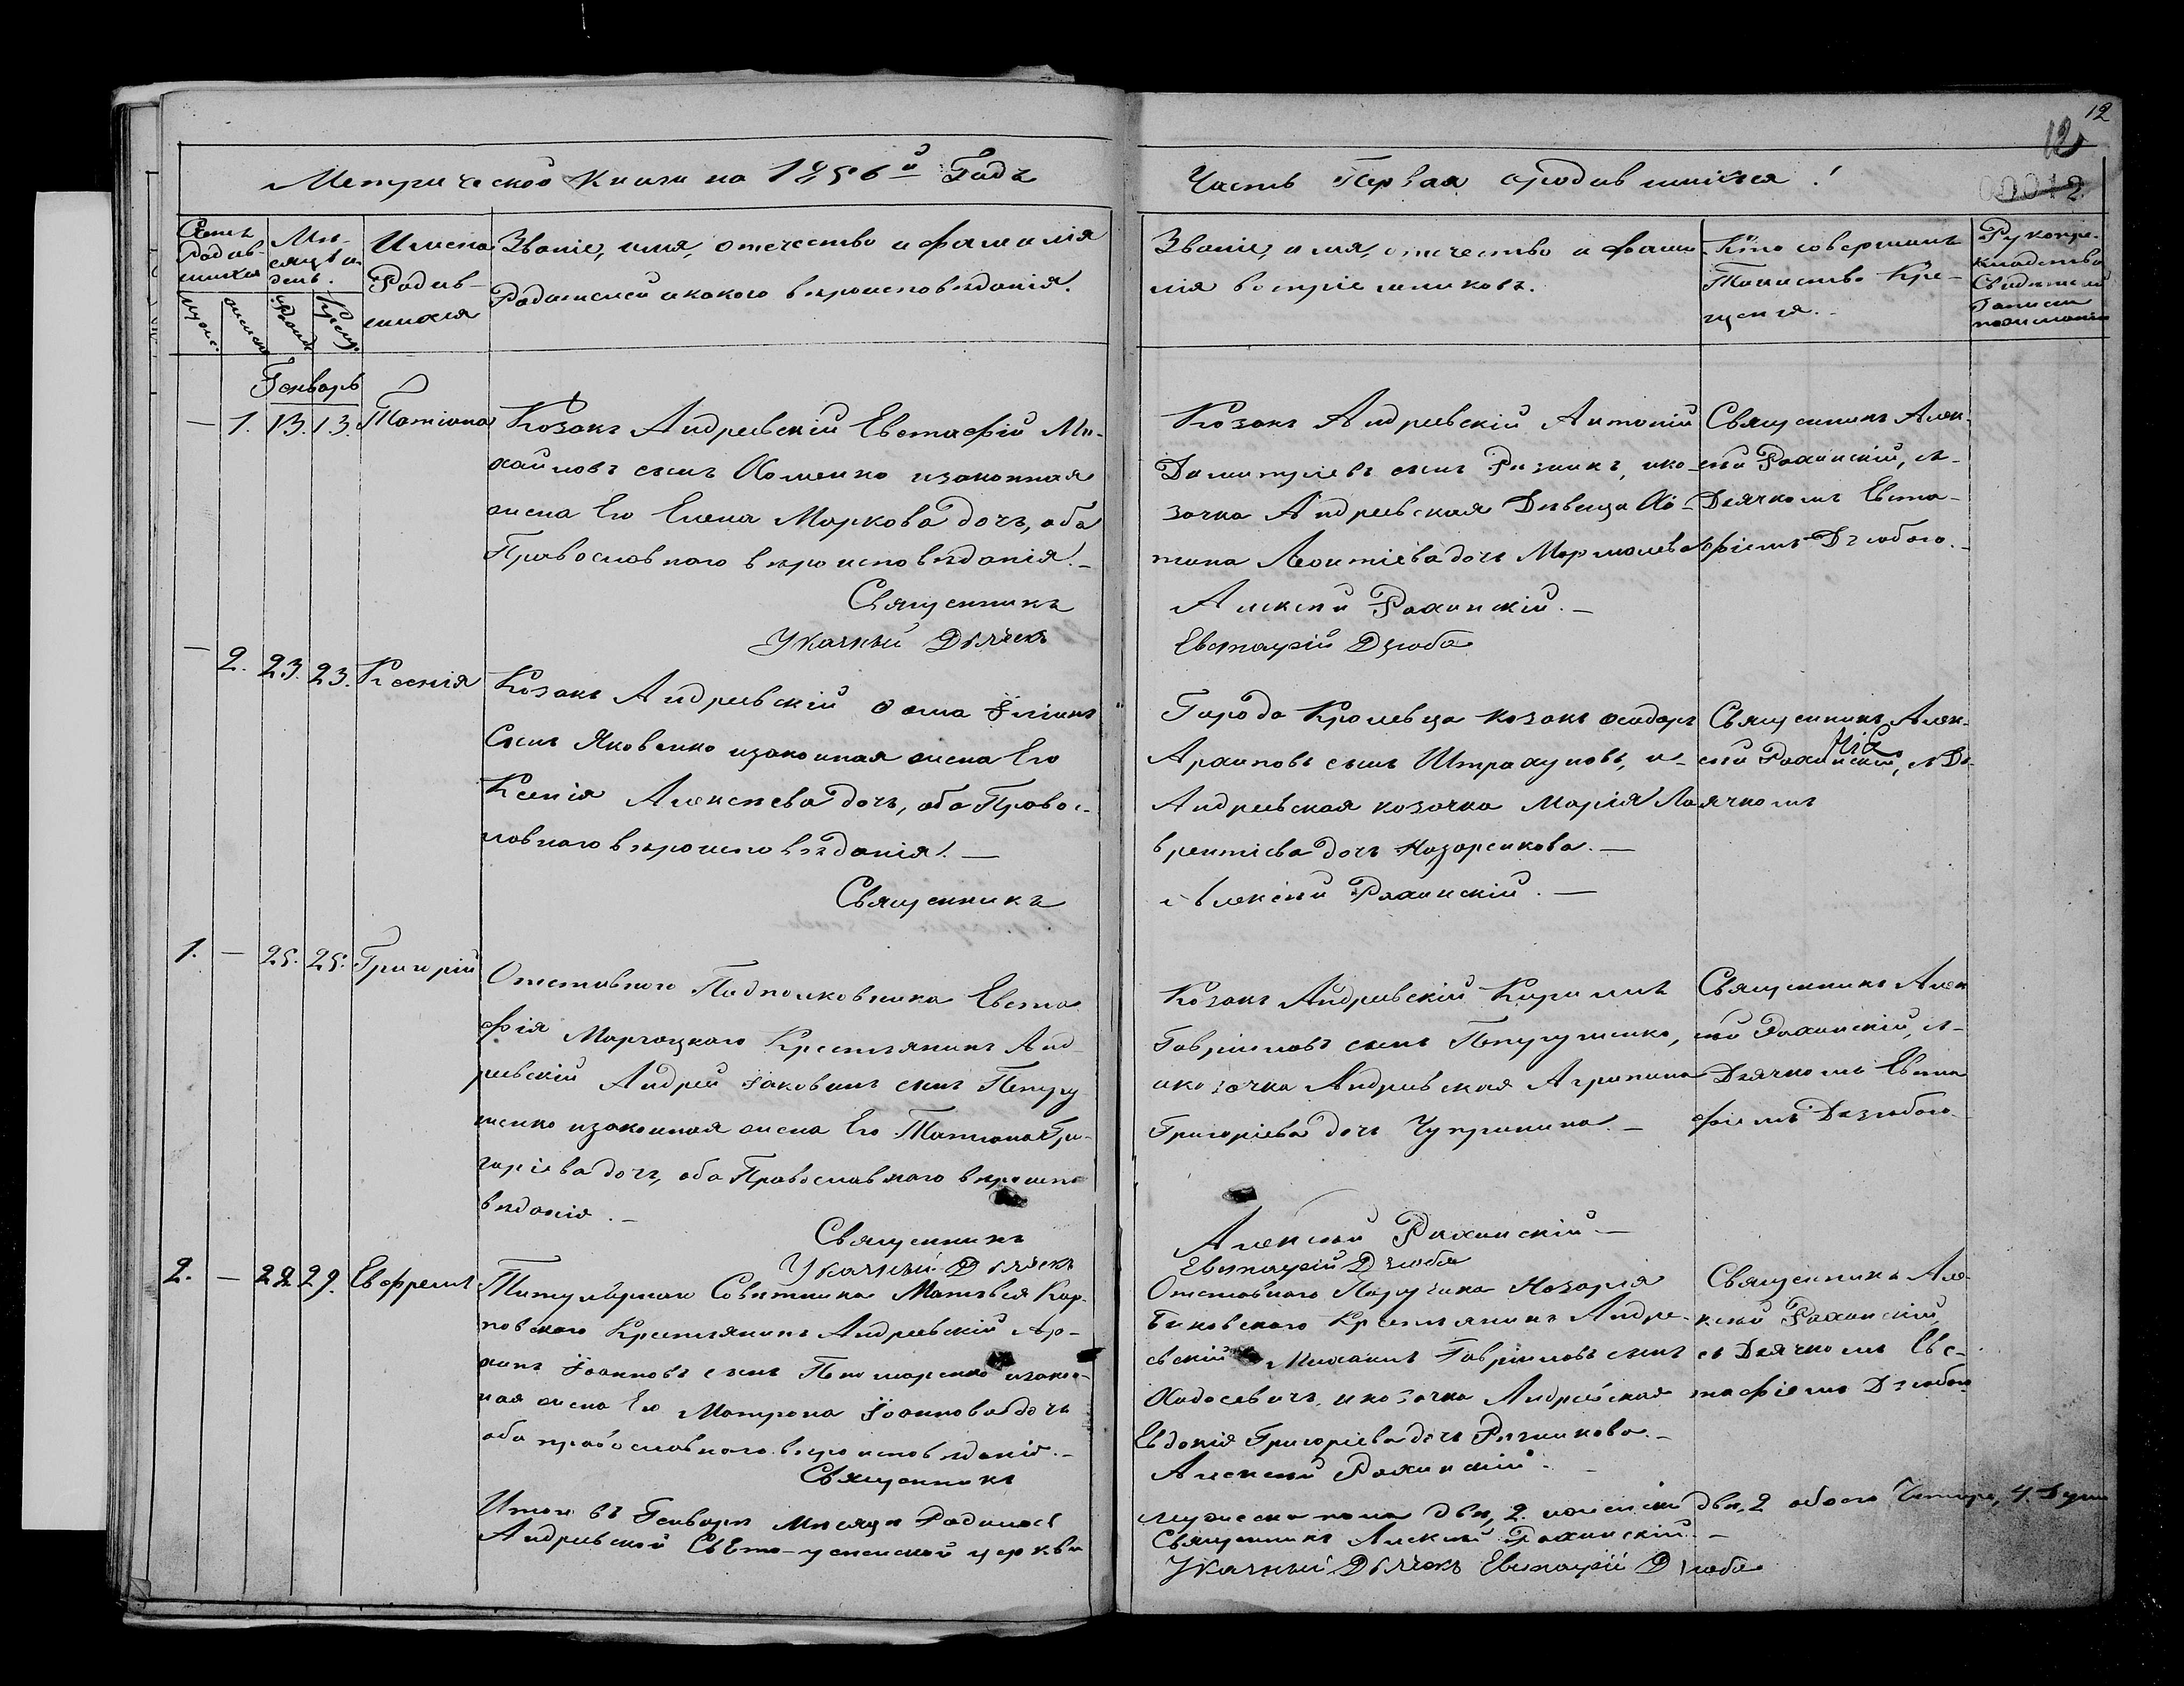 12
12
00012
Метрической Книги на 1856й Годъ
Часть Первая о родившихся!
Счетъ Родив-шихся
Мѣ-сяцъ и день.
Имена Родив-шихся
Званіе, имя, отчество и фамилія
Родителей и какого вѣроисповѣданія.
Званіе, имя, отчество и фами
лія воспріемниковъ.
Кто совершалъ
Таинство Кре-
щенія.
Рукопри-
кладство
Свидѣтелей
Записи
по желанію
Мужес.
женска
Рожд.
Крещ.
Генварь
— 1. 13. 13. Татіана
Козакъ Андреевскій Евстафій Ми-
хайловъ сынъ Хоменко изаконная
жена Его Елена Маркова дочь, оба
Православнаго вѣроисповѣданія. —
Священникъ
Указный Дьячекъ
Козакъ Андреевскій Антоній
Димитріевъ сынъ Ризникъ, ико-
зачка Андреевская Девица
Леонтіева дочь
Алексѣй Рахинскій. —
Евстафій Дзюба
Священникъ Алек-
сѣй Рахинскій, съ-
Дьячкомъ Евста-
фіемъ Дзюбою. —
— 2. 23. 23. Ксенія
Козакъ Андреевскій Фома
Сынъ Яковенко изаконная жена Его
Ксенія Алексѣева дочь, оба Правос-
лавнаго вѣроисповѣданія. —
Священникъ
Города Кролевца козакъ
Архиповъ сынъ Штрахуновъ, и-
Андреевская козачка Марія Ла
врентіева дочь Назаренкова. —
Алексѣй Рахинскій. —
Священникъ Алек-
сѣй Рахинскій, съ Дь-
ячкомъ
1. — 25. 25. Григорій
Отставного Подполковника Евста
фія Маргацкаго Крестьянинъ Анд-
реевскій Андрей Іаковлевъ сынъ Петру
шенко изаконная жена Его Татіана Гри-
горіева дочь, оба Православнаго вѣроиспо
вѣданія. —
Священникъ
Указный Дьячекъ
Козакъ Андреевскій Кириллъ
Гавріиловъ сынъ Петрушенко,
икозачка Андреевская Агрипина
Григоріева дочь Чуприкина. —
Алексѣй Рахинскій —
Евстафій Дзюба
Священникъ Алек
сѣй Рахинскій, съ-
Дьячкомъ Евста
фіемъ Дзюбою
2. — 28. 29. Евфремъ
Титулярнаго Совѣтника Матвѣя Кар-
повскаго Крестьянинъ Андреевскій Ар-
хипъ Іоанновъ сынъ Пономаренко изакон-
ная жена Его Матрона Іоаннова дочь
оба православнаго вѣроисповѣданія. —
Священникъ
Отставного Поручика Назарія
Быковскаго Крестьянинъ Андре-
евскій Михаилъ Гавріиловъ сынъ
Ходосевичъ, икозачка Андреевская
Евдокія Григоріева дочь Ризникова. —
Алексѣй Рахинскій. —
Священникъ Але-
ксѣй Рахинскій
съ Дьячкомъ Евс-
тафіемъ Дзюбою
Итого въ Генварѣ Мѣсяцѣ Родилось
Андреевской Свѣто-успенской церкви
мужеска пола два, 2. женска два, 2 обоего Четыре, 4. души
Священникъ Алексѣй Рахинскій. —
Указный Дьячекъ Евстафій Дзюба